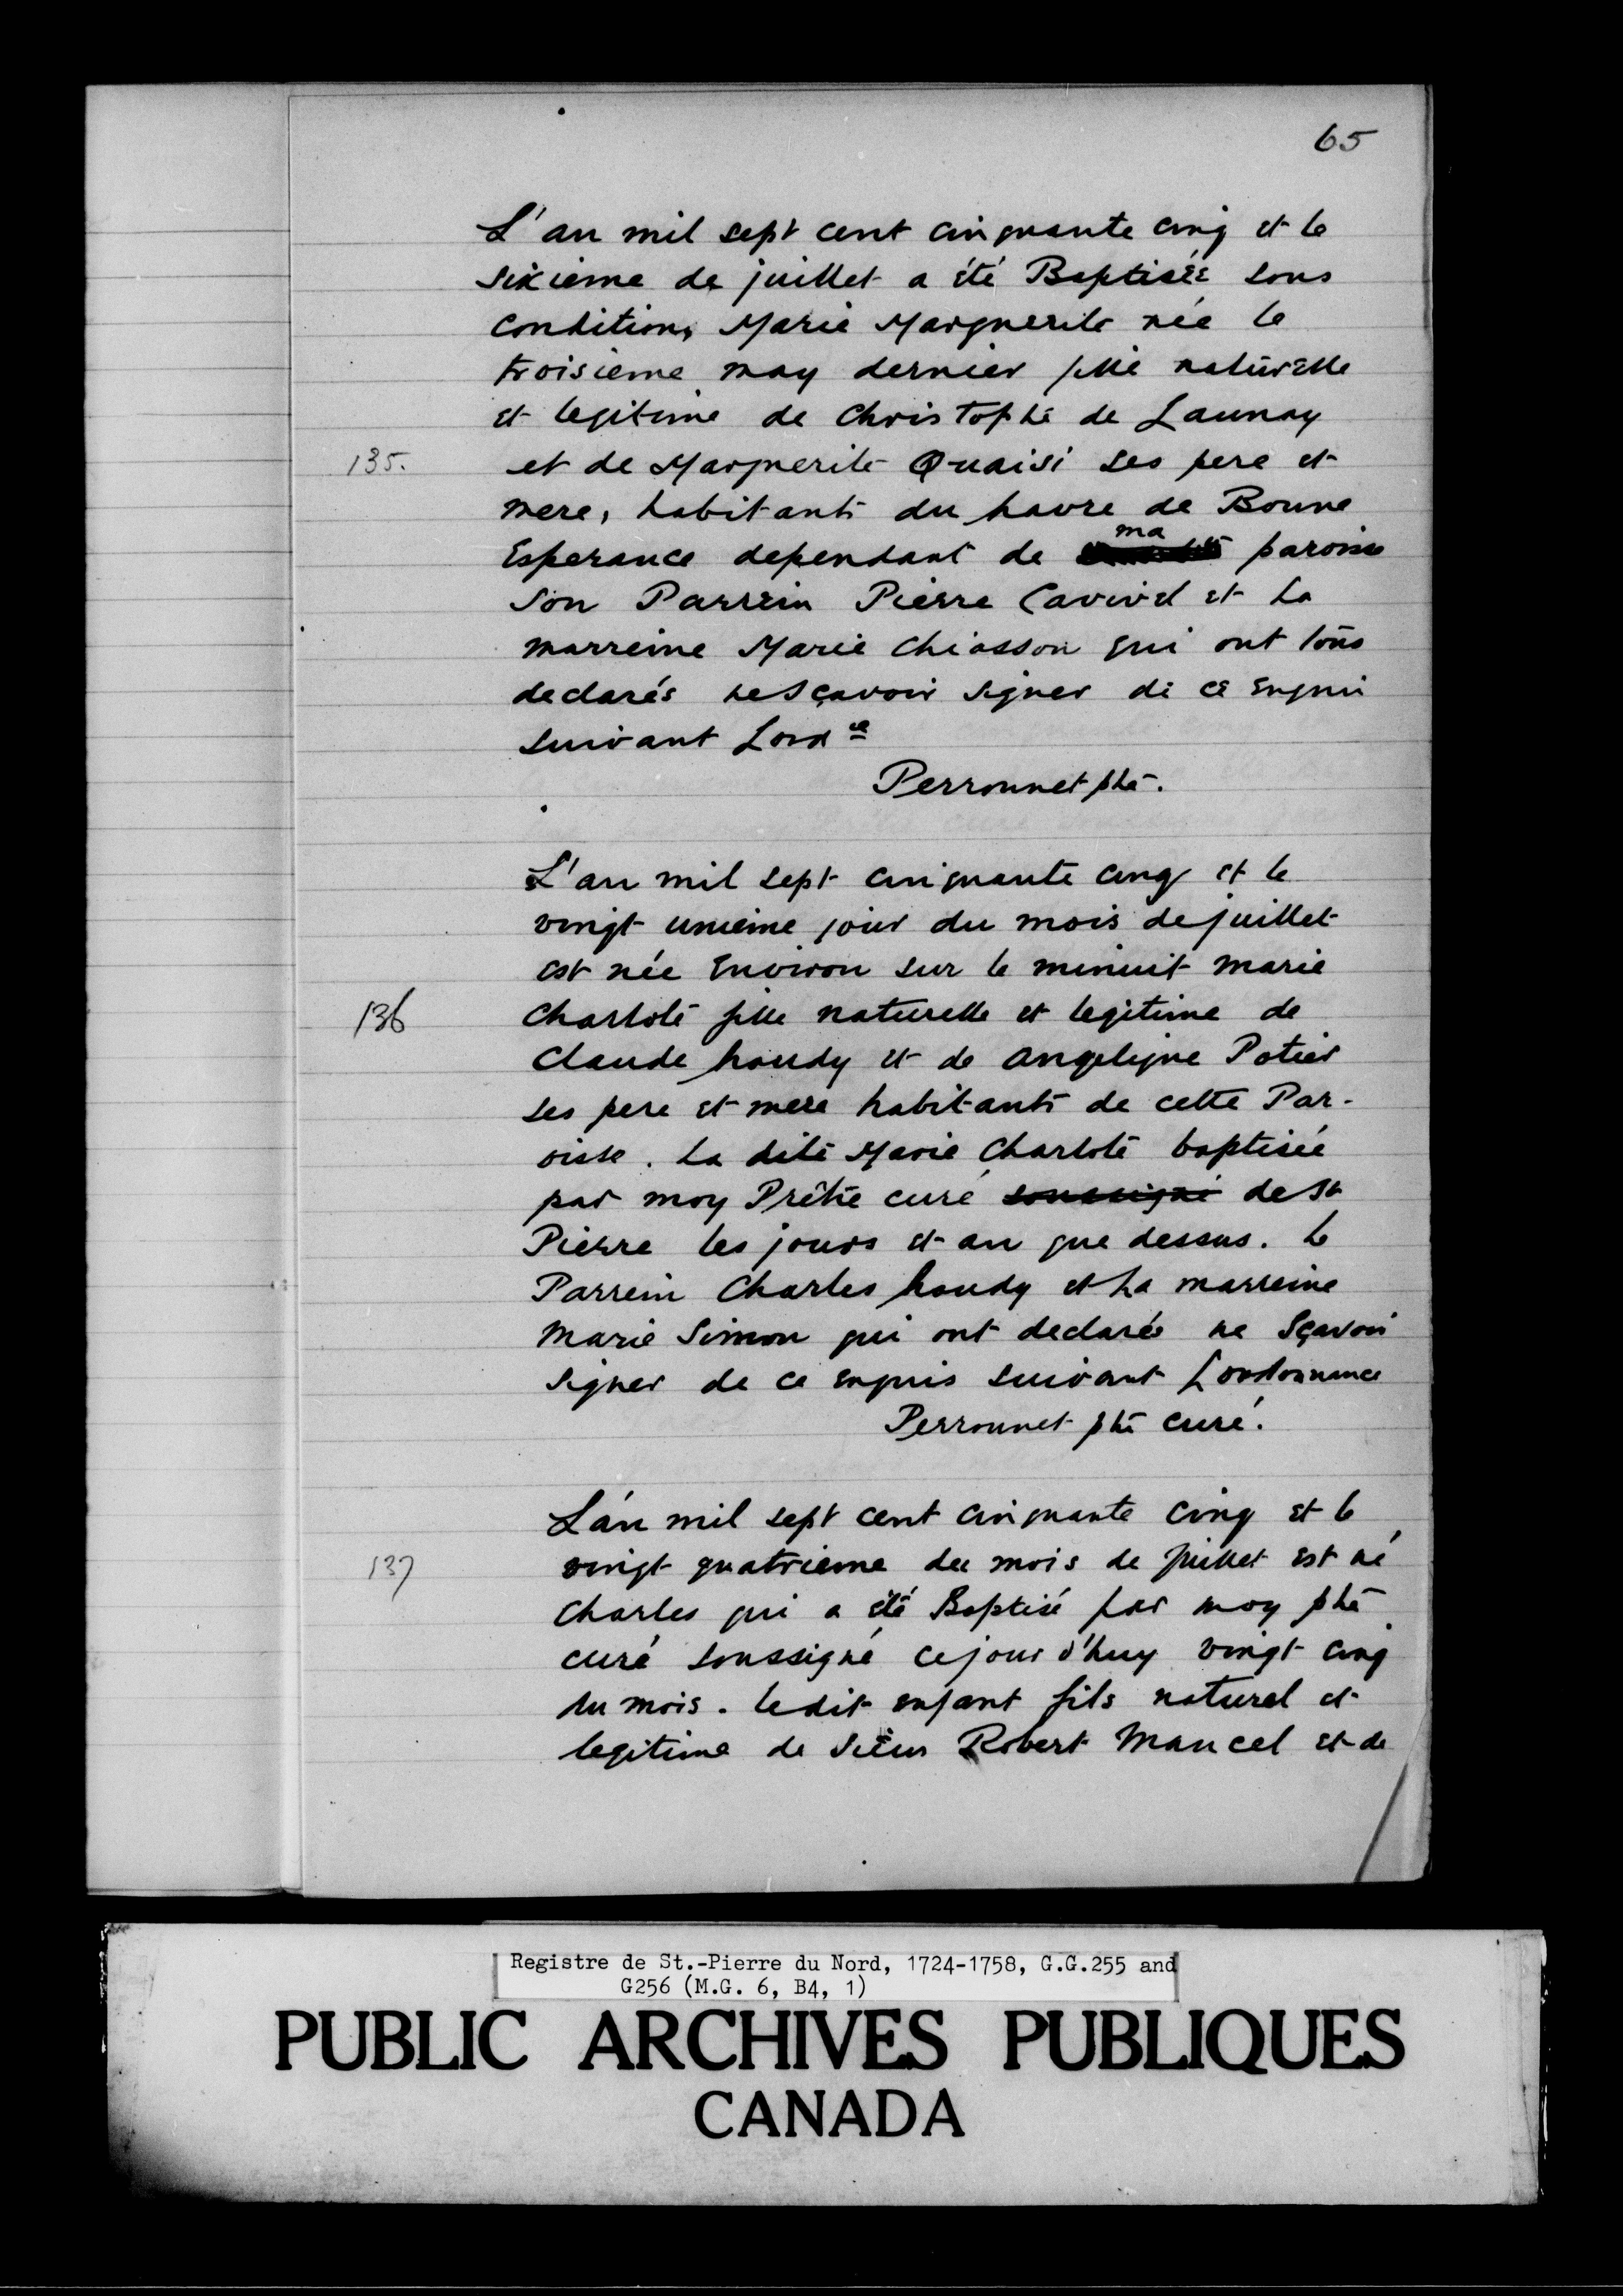 65
L'an mil sept cent cinquante cinq et le
sixieme de juillet a été Baptisée sous
condition, Marie Marguerite née le
troisieme may dernier fille naturelle
et legitime de Christophe de Launay
135. et de Marguerite Quaisi ses pere et
mere, habitants du havre de Bonne
ma
Esperance dependant de paroisse
Son Parrein Pierre Cavivel et La
marreine Marie Chiasson qui ont tous
declarés ne Sçavoir signer de ce enquis
suivant Lordce
Perronnet ptre.
L'an mil sept cinquante cinq et le
vingt unieme jour du mois de juillet
est née Environ sur le minuit marie
136 Charlote fille naturelle et legitime de
Claude houdy et de angelique Potier
ses pere et mere habitants de cette Par-
oisse. La dite Marie Charlote baptisée
par moy Prêtre curé soussigné de St
Pierre les jours et an que dessus. Le
Parrein Charles houdy et La marreine
Marie Simon qui ont declarés ne Sçavoir
signer de ce enquis suivant Lordonnance
Perronnet ptre curé.
L'an mil sept cent cinquante cinq et le
137 vingt quatrieme du mois de juillet est né
Charles qui a été Baptisé par moy ptre
curé soussigné ce jour d'huy vingt cinq
du mois. Ledit enfant fils naturel et
legitime de Sieur Robert Mancel et de
Registre de St.-Pierre du Nord, 1724-1758, G.G.255 and
G256 (M.G. 6, B4, 1)
PUBLIC ARCHIVES PUBLIQUES
CANADA